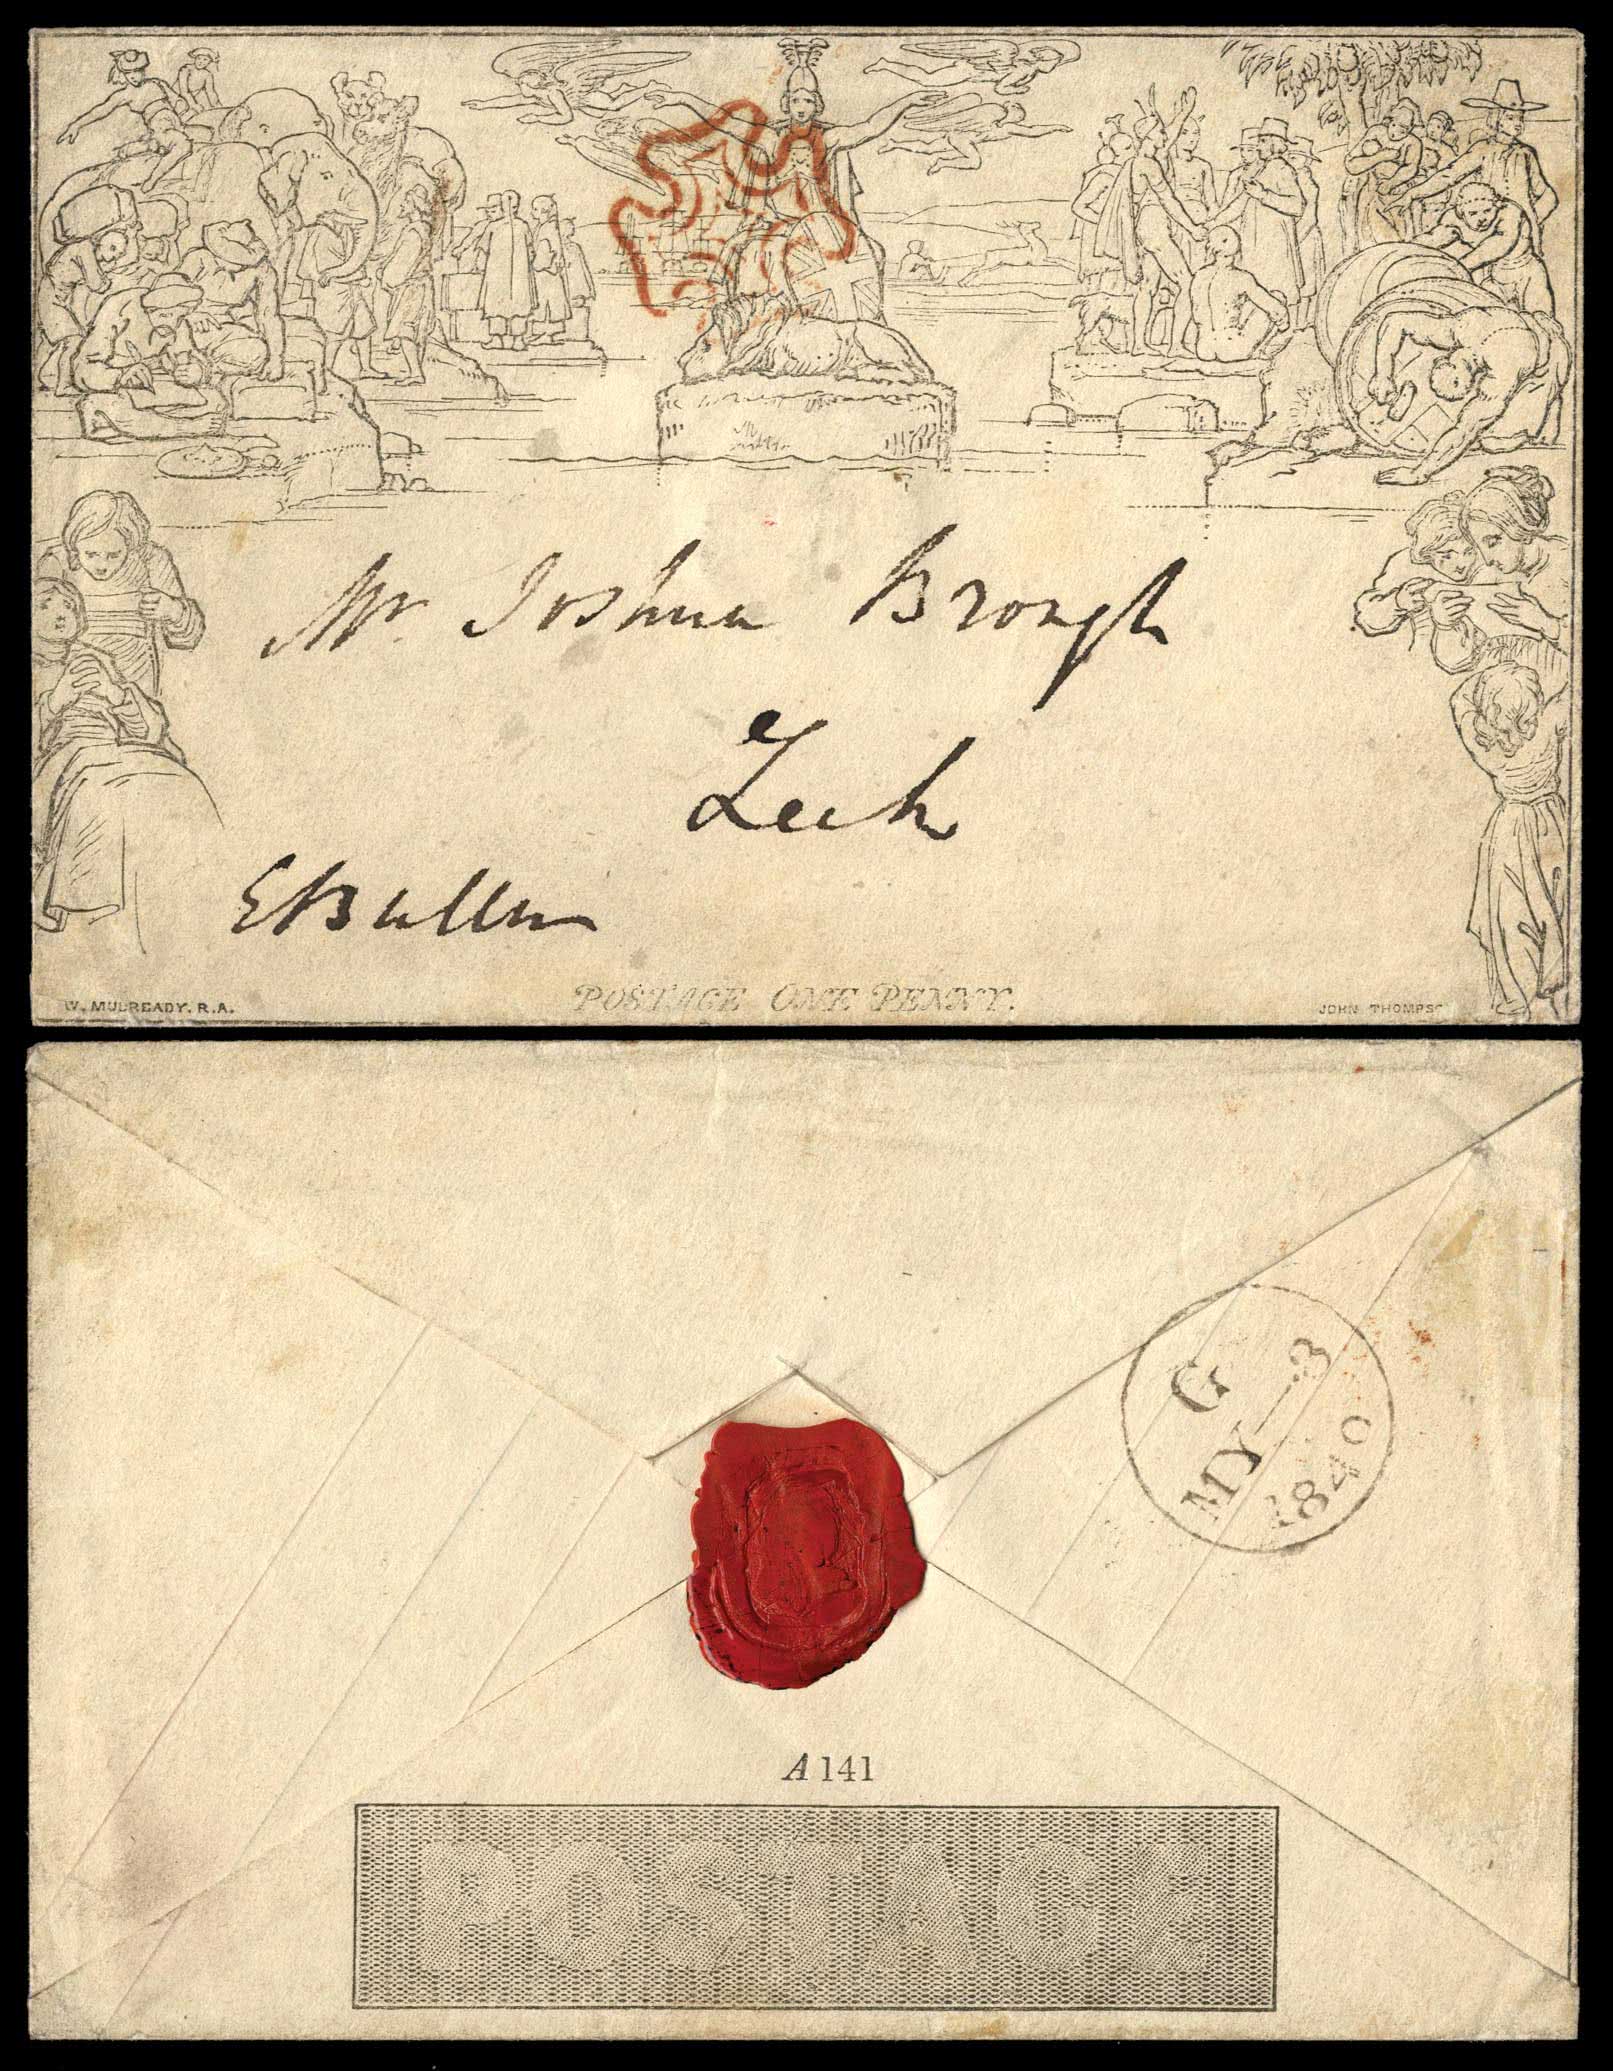 Mr. Joshua Brough
Leek
E Bullen
W. MULREADY. R.A.
POSTAGE ONE PENNY.
JOHN THOMPS
G
MY-3
1840
A 141
POSTAGE